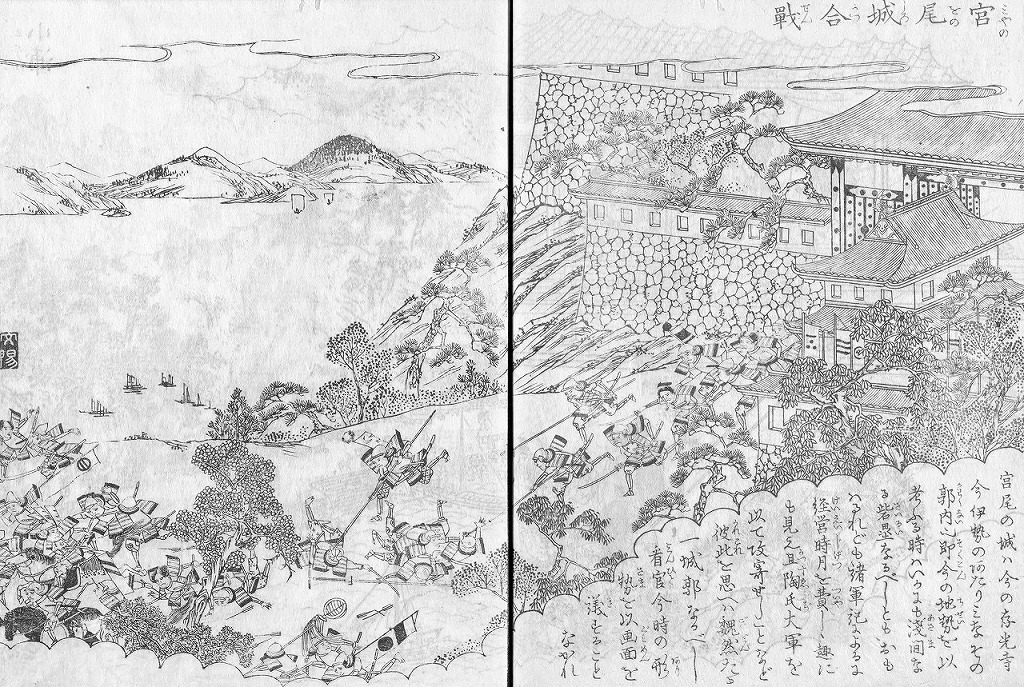 宮尾城合戰
宮尾の城ハ今の存光寺
今伊勢のわたりミなその
郭内也即今の地勢を以
考ふる時ハいかにも浅間な
る砦塁なるべしともおも
はるれども諸軍記によるに
経営時月を費しゝ趣に
も見え且陶氏大軍を
以て攻寄せしことなど
彼此を思へハ巍然たる
一城郭なるべし
看官今時の形
勢を以画面を
議すること
なかれ
文陽